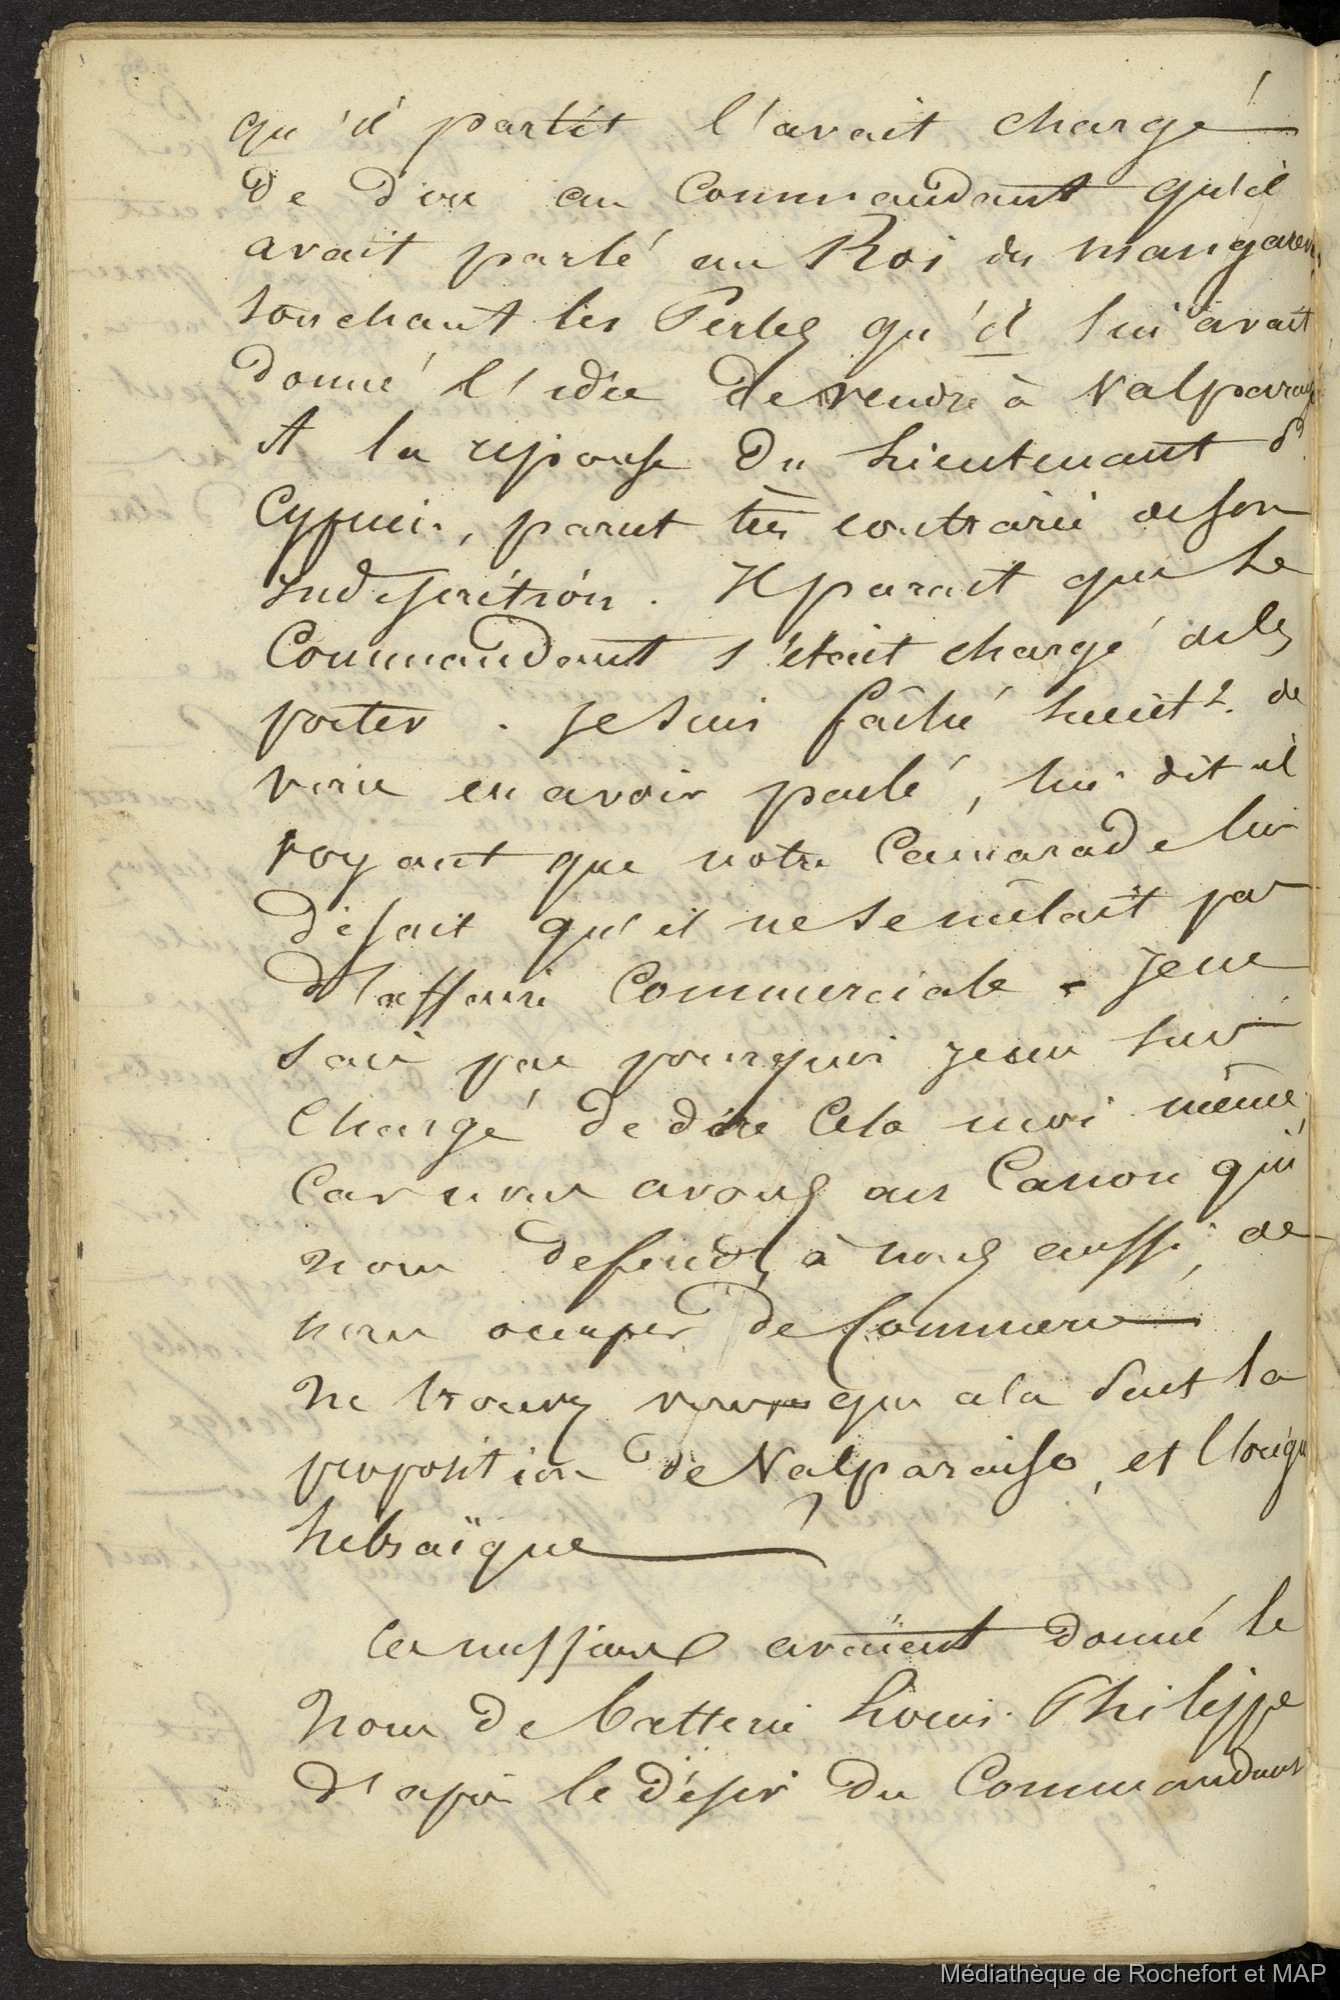 qu'il partît l'avait chargé
de dire au Commandant qu'il
avait parlé au Roi des mangarev
touchant les Perles qu'il lui avait
donné l'idée de vendre à Valparaiso
A la réponse du Lieutenant P.
Cyprien, parut très contrarié de son
indiscrétion. Il parait que le
Commandant s'était chargé de les
porter. je suis fâché Lieut t. de
vous en avoir parlé, lui dit il
voyant que notre Camarade lui
disait qu'il ne se mêlait pas
d'affaire Commerciale. Je ne
sais pas pourquoi je me suis
chargé de dire cela moi même,
Car nous avons un Canon qui
nous defends, à nous aussi, de
nous occuper de Commerce
Ne trouvez vous pas que cela sent la
proposition de Valparaiso, et l'origi
hébraïque
Ces messieurs avaient donné le
nom de batterie Louis Philippe
d'après le désir du Commandant
Médiathèque de Rochefort et MAP